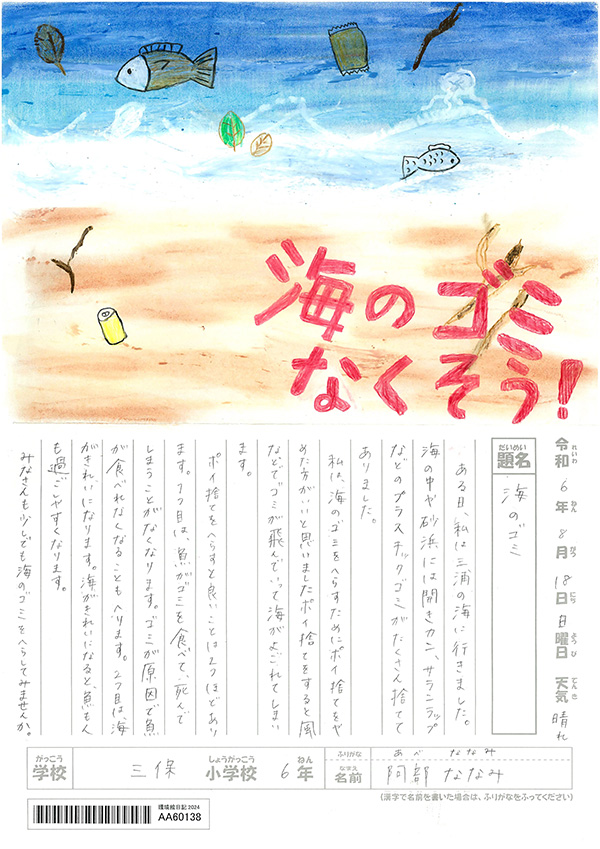 海のゴミ
なくそう!
令和6年8月18日日曜日 天気 晴れ
れいわ ねん がつ にち ようび てんき
だいめい
題名
海のゴミ
ある日、私は三浦の海に行きました。
海の中や砂浜には開きカン、サランラップ
などのプラスチックゴミがたくさん捨てて
ありました。
私は、海のゴミをへらすためにポイ捨てをや
めた方がいいと思いましたポイ捨てをすると風
などでゴミが飛んでいって海がよごれてしまい
ます。
ポイ捨てをへらすと良いことは2つほどあり
ます。1つ目は、魚がゴミを食べて、死んで
しまうことがなくなります。ゴミが原因で魚
が食べれなくなることもへります。2つ目は、海
がきれいになります。海がきれいになると、魚も人
も過ごしやすくなります。
みなさんも少しでも海のゴミをへらしてみませんか。
がっこう しょうがっこう ねん ふりがな あべ ななみ
学校 三保 小学校 6年 なまえ 名前 阿部 ななみ
(漢字で名前を書いた場合は、ふりがなをふってください)
環境絵日記2024
AA60138